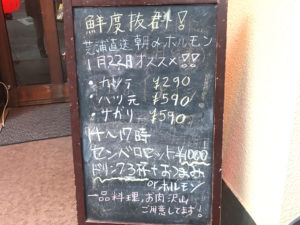 鮮度抜群!
芝浦直送朝〆ホルモン
1月22月オススメ!!
・カシラ ¥290
・ハツ元 ¥590
・サガリ ¥590
14〜17時
センベロセット¥1000
ドリンク3杯+おつまみ
orホルモン
一品料理、お肉沢山
ご用意してます!